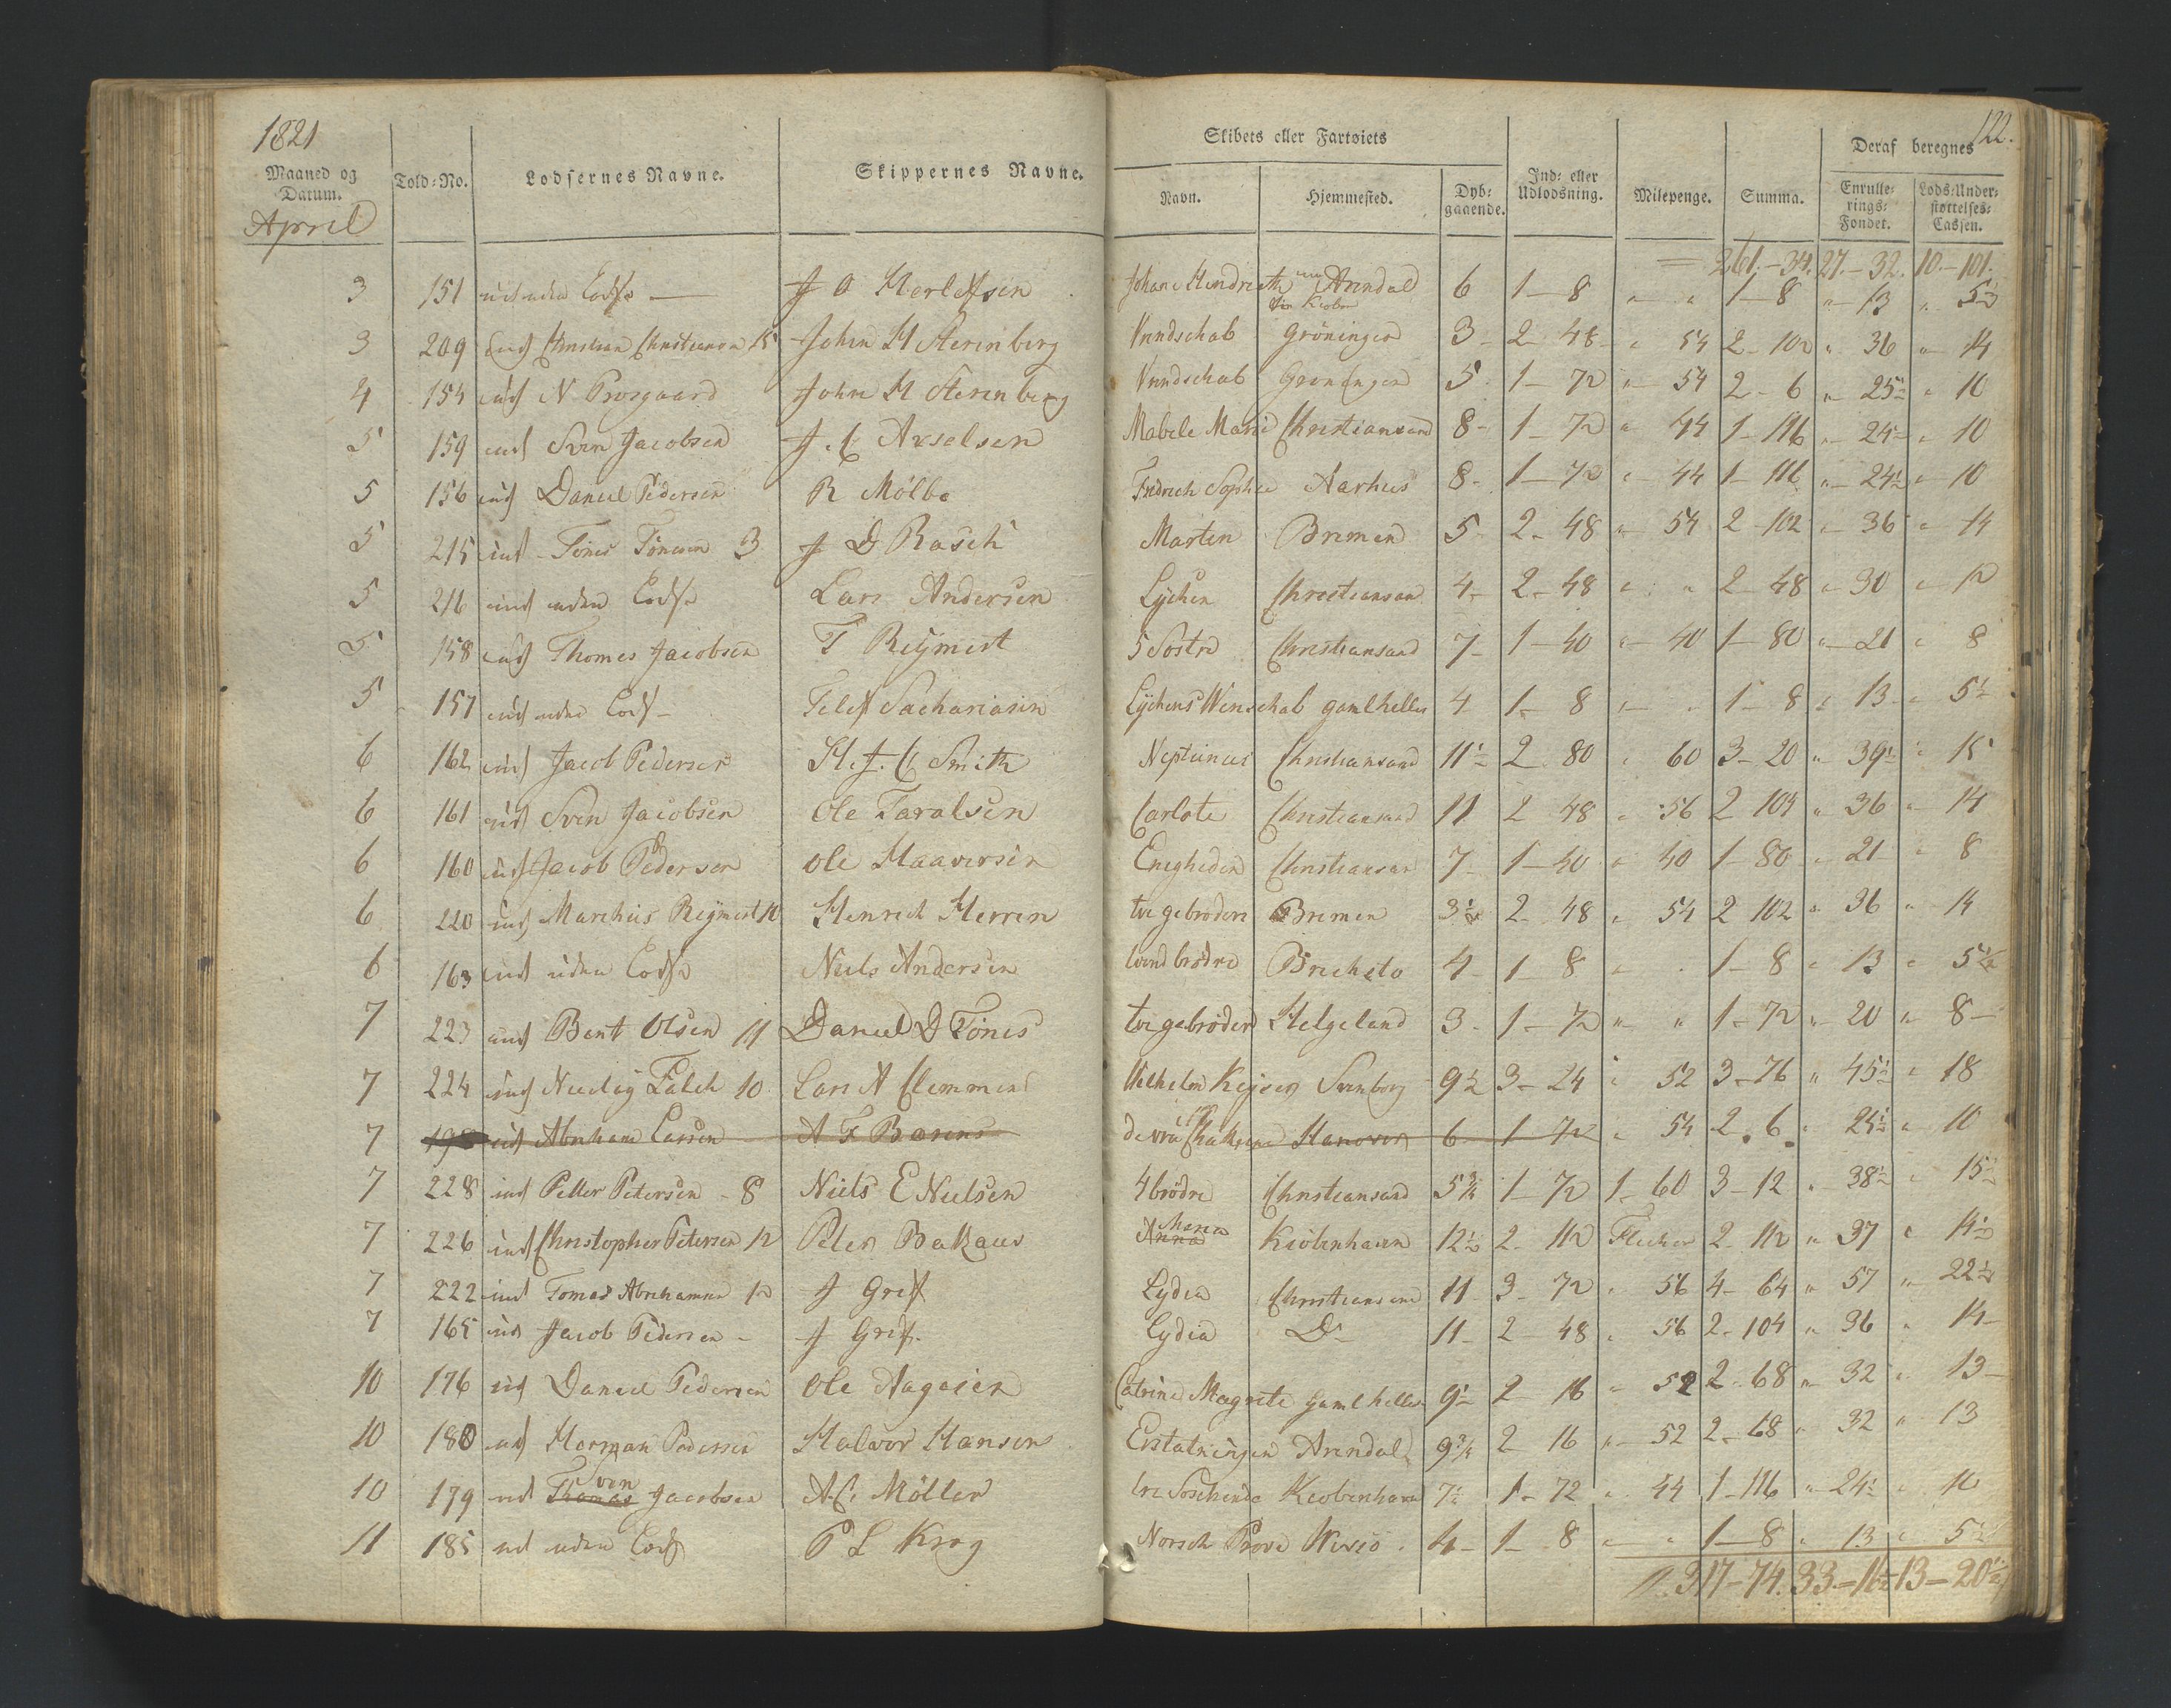 1821
122.
Maaned og Datum.
Told-No.
Lodsernes Navne.
Skippernes Navne.
Skibets eller Fartøiets
Navn.
Hjemmested.
Dybgaaende.
Ind- eller Udlodsning.
Milepenge.
Summa.
Deraf beregnes
Enrullerings-Fondet.
Lods-Understøttelses-Cassen.
April
261.-34. 27.-32. 10.-101.
3 151 uden Lods — J O Johane Hendriette Arendal 6 1-8 " " 1-8 " 13 " 5½
3 209 Christian Christiansen 15 John H Sterenberg Vundschab Gröningen 3- 2-48- " 54 2-102 " 36 " 14
4 154 ud N Prosgaard John H Sterenberg Vundschab Groningen 5. 1-72 " 54 2-6 " 25½ " 10
5 159 ud Sven Jacobsen J. C Axselsen Mabele Marie Christiansand 8- 1-72 " 44 1-116 " 24½ " 10
5 156 ud Daniel Pedersen R Mölbo Fridrich Sophie Aarhus 8- 1-72 " 44 1-116 " 24½ " 10
5 215 ind Tönes Tönesen 3 J D Rasch Marten Bremen 5- 2-48 " 54 2-102 " 36 " 14
5 216 ind uden Lods Lars Andersen Lÿcken Christiansan 4- 2-48 " " 2-48 " 30 " 12
5 158 ud Thomes Jacobsen T Reÿmert 5 Sostre Christiansand 7- 1-40 " 40 1-80 " 21 " 8
5 157 ud uden Lods - Sachariasen Lÿckens Wenschab gamlhellu 4 1-8 " " 1-8 " 13 " 5½
6 162 ud Jacob Pedersen H. J. C Smith Neptunus Christiansand 11½ 2 80 " 60 3-20 " 39½ " 15
6 161 ud Sven Jacobsen Ole Taralsen Carlote Christiansand 11 2 48 " 56 2 104 " 36 " 14
6 160 ud Jacob Pedersen Ole Haaversen Enegheden Christiansan 7- 1-40 " 40 1-80 " 21 " 8
6 220 ind Marchus Reÿmert 10 Henrich Herren tve gebrodere Bremen 3½ 2-48 " 54 2 102 " 36 " 14
6 163 ud uden Lods Niels Andersen brödre 4- 1-8 " . 1-8 " 13 " 5½
7 223 ind Bent Olsen 11 Daniel D Tönes tve gebröder Helgeland 3- 1-72 " " 1-72 " 20 " 8-
7 224 ind Falck 10 Lars A Clemmens Wilhelm Keÿsen Svenborg 9½ 3-24 " 52 3-76 " 45½ " 18
7 ud Abraham Larsen A F Barens de vrou Hanover 6- 1-72 " 54 2.6. " 25½ " 10
7 228 ind Petter Petersen - 8 Niels E Nielsen 4 brödre Christiansand 5¾ 1-72 1-60 3-12 " 38½ " 15½
7 226 ind Christopher Petersen 12 Peter Bakaus Anna Maria Kiöbenhavn 12½ 2-112 Flecker 2-112 " 37 " 14½
7 222 ind Tomas Abrahamsen 12 J Grif Lydia Christiansand 11 3-72 " 56 4-64 " 57 " 22½
7 165 ud Jacob Pedersen - J Grif. Lydia Do 11- 2-48 " 56 2-104 " 36 " 14-
10 176 ud Daniel Pedersen Ole Aagesen Catrine Magrete gamlhellu 9½ 2-16 " 52 2-68 " 32 " 13-
10 180 ud Herman Pedersen Halvor Hansen Erstatningen Arendal 9¾ 2-16 " 52 2-68 " 32 " 13
10 179 ud Thomas Sven Jacobsen A. C. Möller tre Soskende Kiobenhavn 7½ 1-72 " 44 1-116 " 24½ " 10
11 185 ud uden Lods P L Krog Norsch Prove 4- 1-8 " " 1-8 " 13 " 5½
317-74. 33.-16½ 13-20½